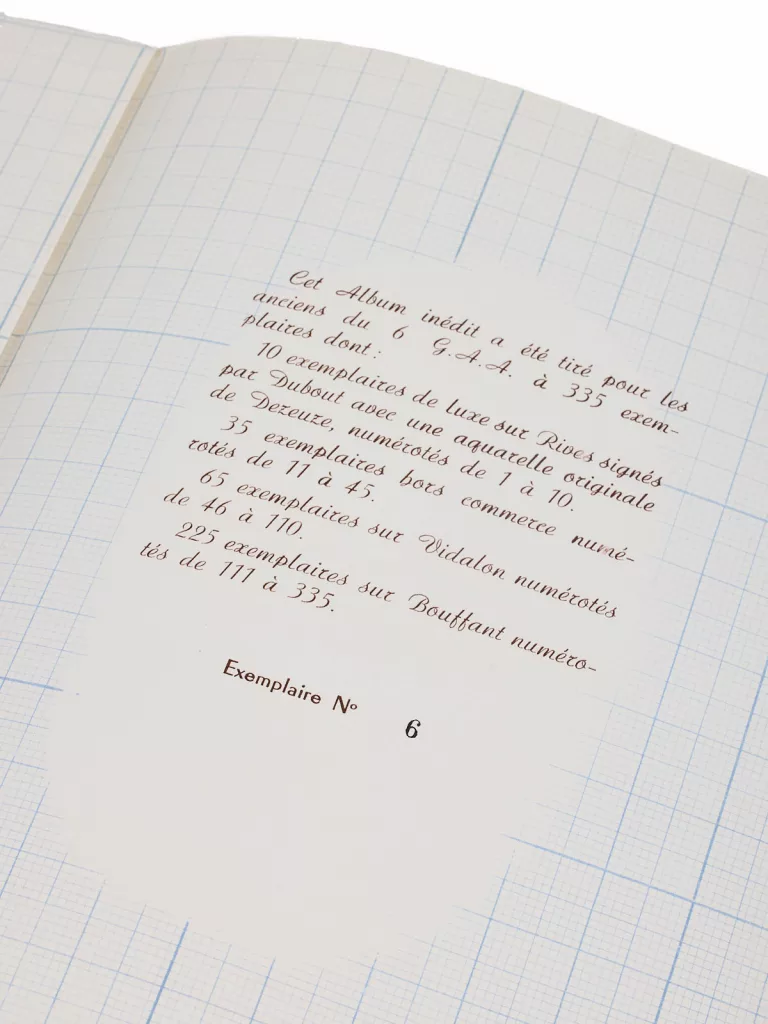 Cet Album inédit a été tiré pour les
anciens du 6 G.A.A. à 335 exem-
plaires dont :
10 exemplaires de luxe sur Rives signés
par Dubout avec une aquarelle originale
de Dezeuze, numérotés de 1 à 10.
35 exemplaires hors commerce numé-
rotés de 11 à 45.
65 exemplaires sur Vidalon numérotés
de 46 à 110.
225 exemplaires sur Bouffant numéro-
tés de 111 à 335.
Exemplaire No 6